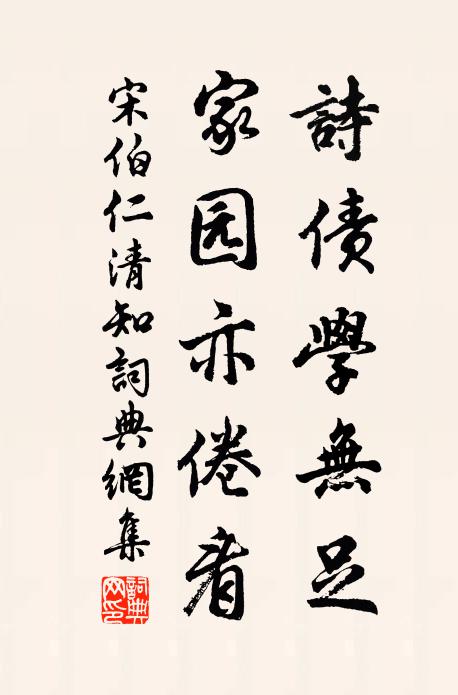 詩債學無足
家园亦倦看
宋伯仁清知詞典網集
詞典网印